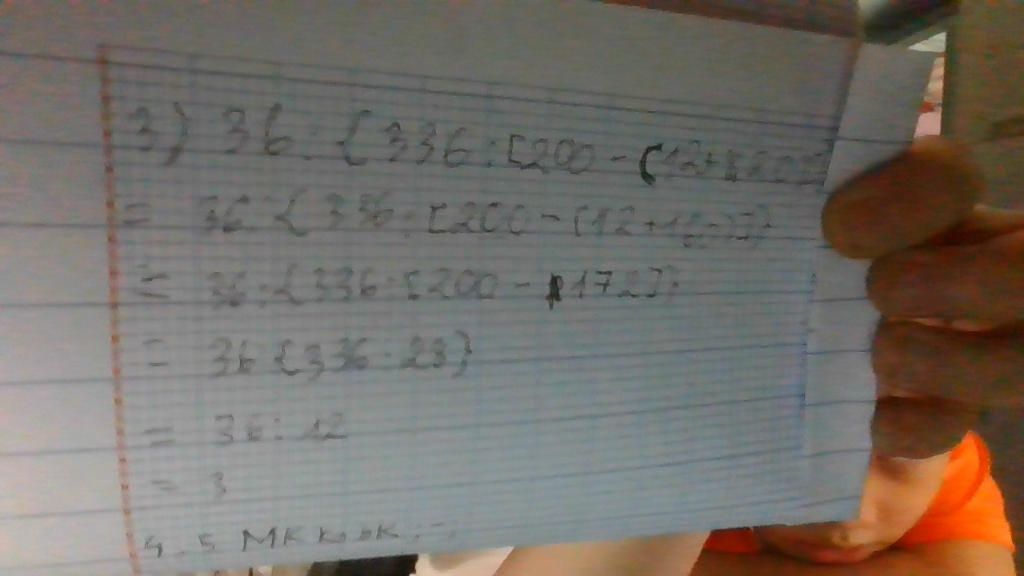 3) 36 : { 336 : [ 200 - ( 12 +
= 36 : { 336 : [ 200 - ( 12 + 160 ) ] }
= 36 : { 336 : [ 200 - 172 ] }
= 36 { 336 : 28 }
= 36 : 12
= 3
4.5